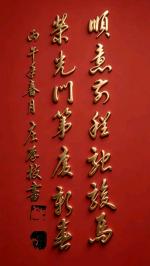 順意前程馳駿馬
榮光門第慶新春
丙午年春月書